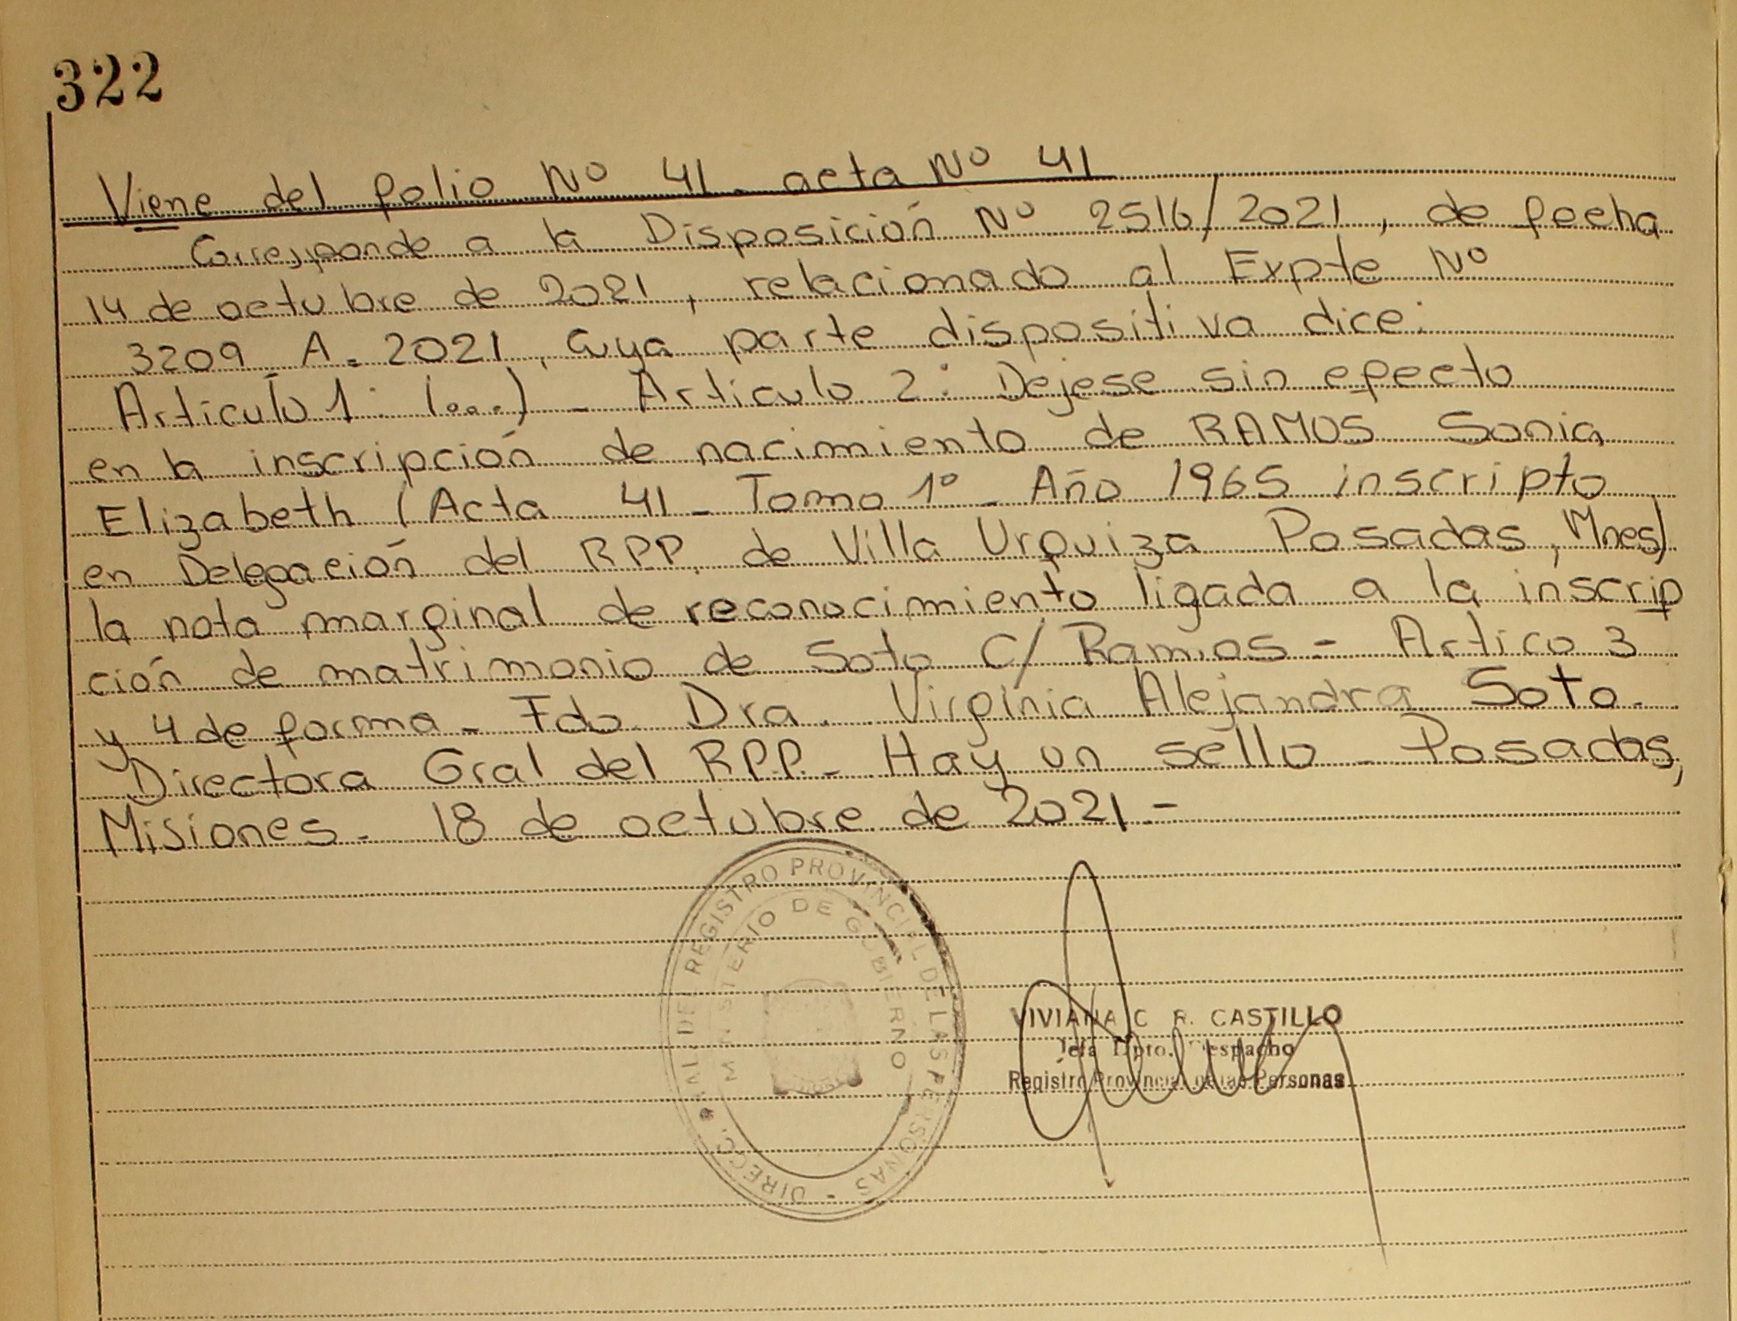 322
Viene del folio Nº 41 - acta Nº 41
Corresponde a la Disposición Nº 2516/2021, de fecha
14 de octubre de 2021, relacionado al Expte Nº
3209 - A - 2021, cuya parte dispositiva dice:
Artículo 1: (...) - Artículo 2: Dejese sin efecto
en la inscripción de nacimiento de RAMOS Sonia
Elizabeth (Acta 41 - Tomo 1º - Año 1965 inscripto
en Delegación del RPP. de Villa Urquiza Posadas, Mnes)
la nota marginal de reconocimiento ligada a la inscrip
ción de matrimonio de Soto C/ Ramos - Artico 3
y 4 de forma - Fdo. Dra. Virginia Alejandra Soto.
Directora Gral del RPP. - Hay un sello - Posadas,
Misiones - 18 de octubre de 2021 -
DIRECC. GRAL. DEL REGISTRO PROVINCIAL DE LAS PERSONAS
MINISTERIO DE GOBIERNO
VIVIANA C. R. CASTILLO
Jefa Dpto. Despacho
Registro Provincial de las Personas